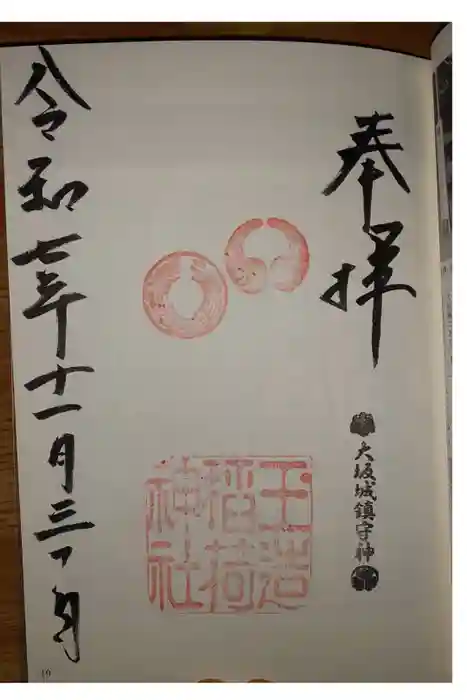 奉拝
大坂城鎮守神
玉造
稲荷
神社
令和七年十一月三十日